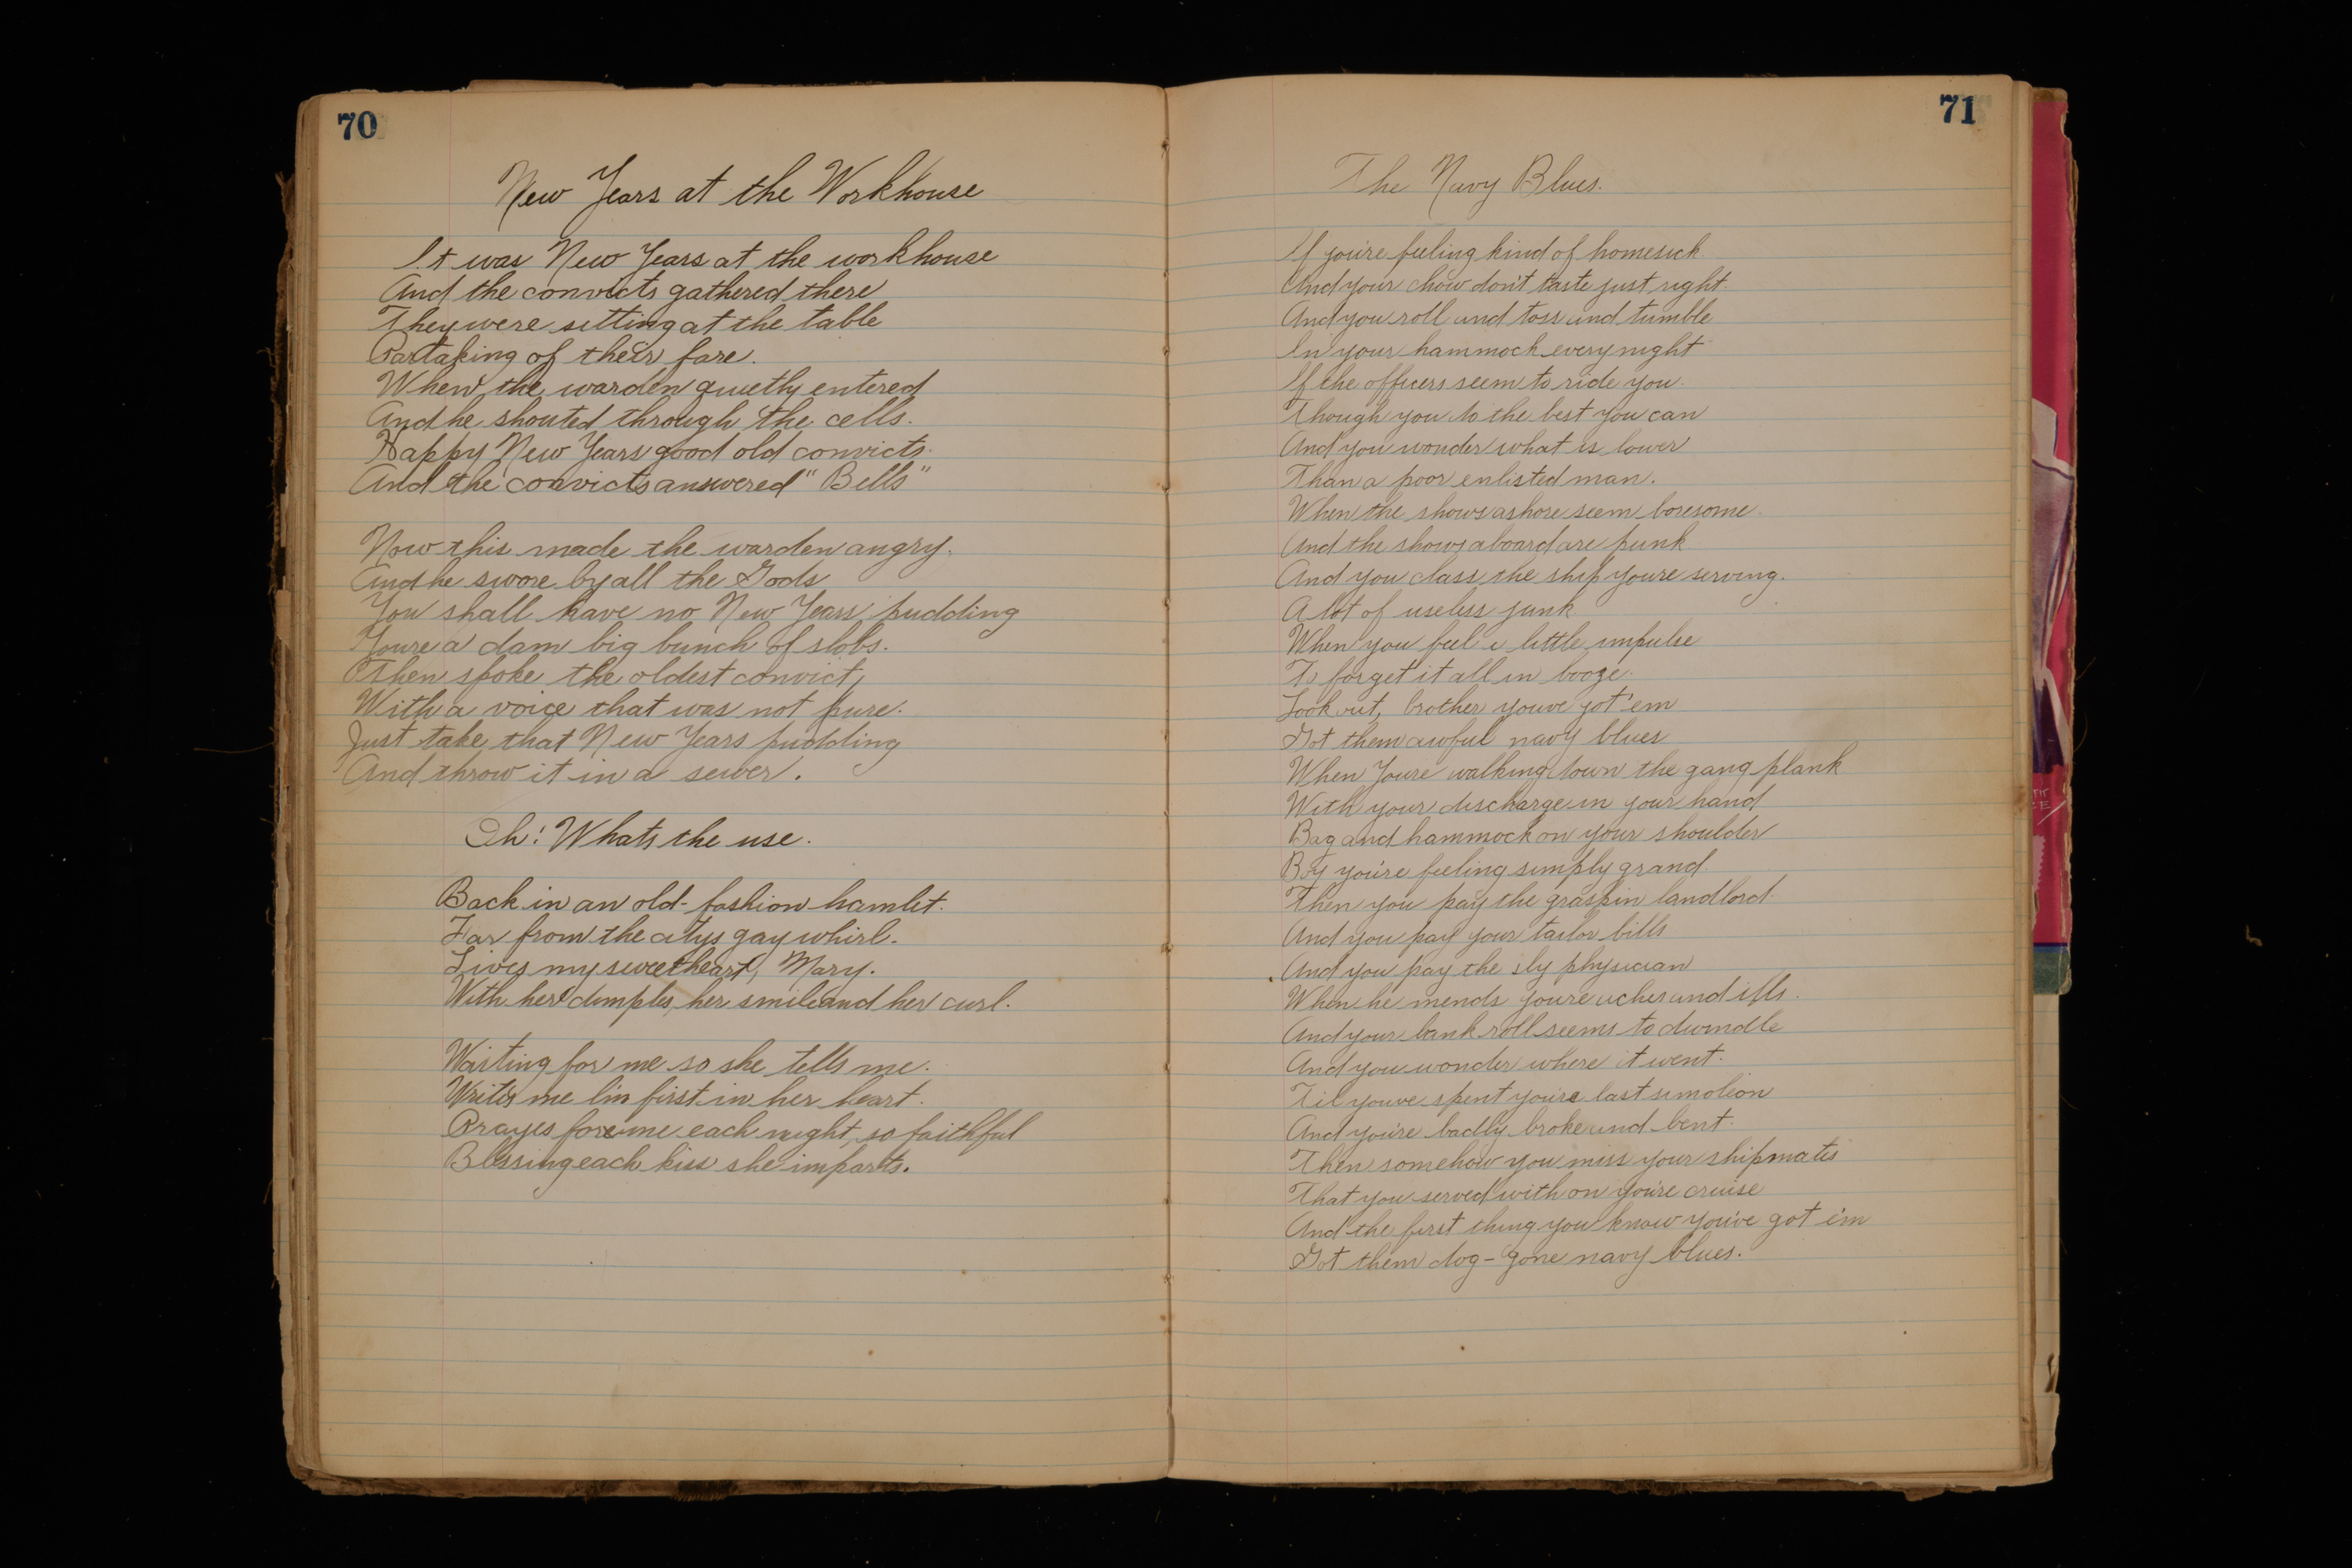 70
New Years at the Workhouse
It was New Years at the workhouse
And the convicts gathered there
They were sitting at the table
Partaking of their fare.
When the warden quietly entered
And he shouted through the cells.
Happy New Years good old convicts.
And the convicts answered "Bells"
Now this made the warden angry.
And he swore by all the Gods
You shall have no New Years pudding
Youre a dam big bunch of slobs.
Then spoke the oldest convict,
With a voice that was not pure.
Just take that New Years pudding
And throw it in a sewer.
Oh! Whats the use.
Back in an old-fashion hamlet.
Far from the citys gay whirl.
Lives my sweetheart, Mary.
With her dimples, her smile and her curl.
Waiting for me so she tells me.
Writes me I'm first in her heart.
Prayes for me each night, so faithful
Blessing each kiss she imparts.
71
The Navy Blues.
If you're feeling kind of homesick
And your chow don't taste just right.
And you roll and toss and tumble
In your hammock every night
If the officers seem to ride you.
Though you do the best you can
And you wonder what is lower
Than a poor enlisted man.
When the shows ashore seem boresome.
And the shows aboard are punk
And you class the ship youre serving.
A lot of useless junk
When you feel a little impulse
To forget it all in booze.
Look out, brother youve got 'em
Got them awful navy blues
When Youre walking down the gang plank
With your discharge in your hand
Bag and hammock on your shoulder
Boy you're feeling simply grand
Then you pay the graspin landlord.
And you pay your tailor bills
And you pay the sly physician
When he mends youre aches and ills.
And your bank roll seems to dwindle
And you wonder where it went.
Til youve spent youre last simoleon
And you're badly broke and bent.
Then somehow you miss your shipmates
That you served with on you're cruise
And the first thing you know you've got e'm
Got them dog-gone navy blues.